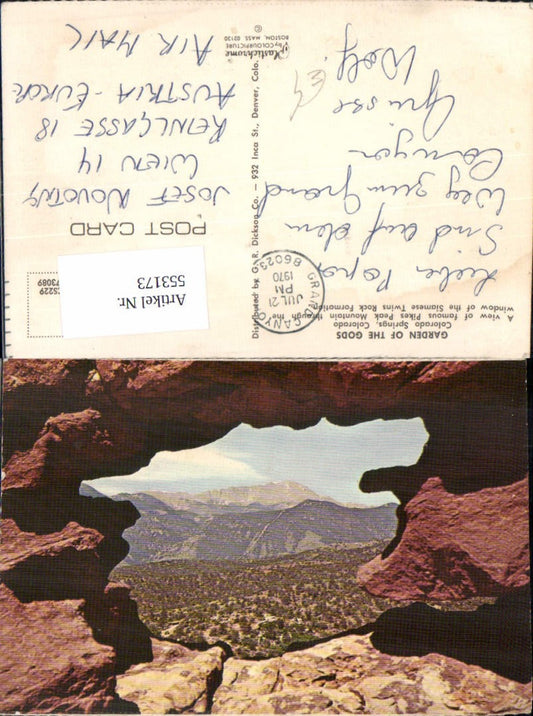 GARDEN OF THE GODS
Colorado Springs, Colorado
A view of famous Pikes Peak Mountain through the
window of the Siamese Twins Rock Formation.
Lieber Papa
Sind auf dem
Weg zum Grand
Canyon
Grüsse
Wolf
GRAND CANYON
JUL 21
PM
1970
86023
Distributed by G. R. Dickson Co. — 932 Inca St., Denver, Colo.
Plastichrome
by COLOURPICTURE
BOSTON, MASS 02130
©
POST CARD
JOSEF NOVOTNY
WIEN 14
REINLGASSE 18
AUSTRIA - EUROPE
AIR MAIL
Artikel Nr.
553173
73089